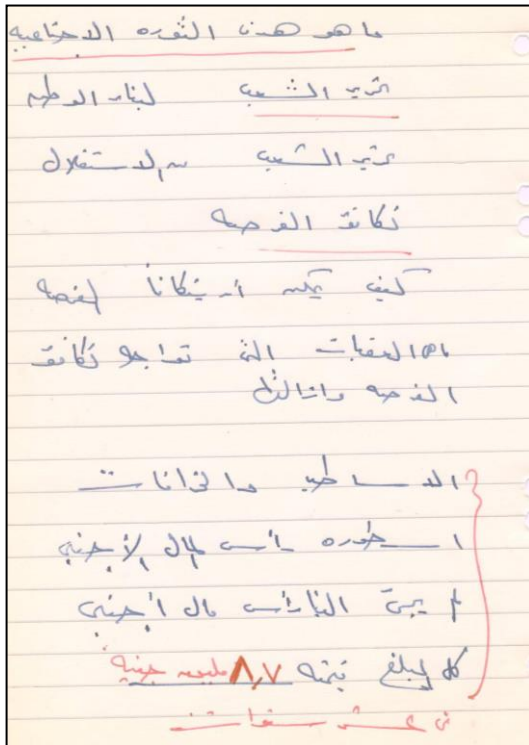 ما هو هدف الثوره الاجتماعيه
تحرير الشعب لبناء الوطن
تحرير الشعب من الاستغلال
تكافؤ الفرصه
كيف يمكن أن يتكافأ الفرصه
ما هى العقبات التى تواجه تكافؤ
الفرصه وازالتها
الاساطير والخرافات
اسطوره رأس المال الأجنبى
لم يجئ الينا رأس مال أجنبى
كل مبلغ قيمته ٨,٧ مليون جنيه
فى عشر سنوات